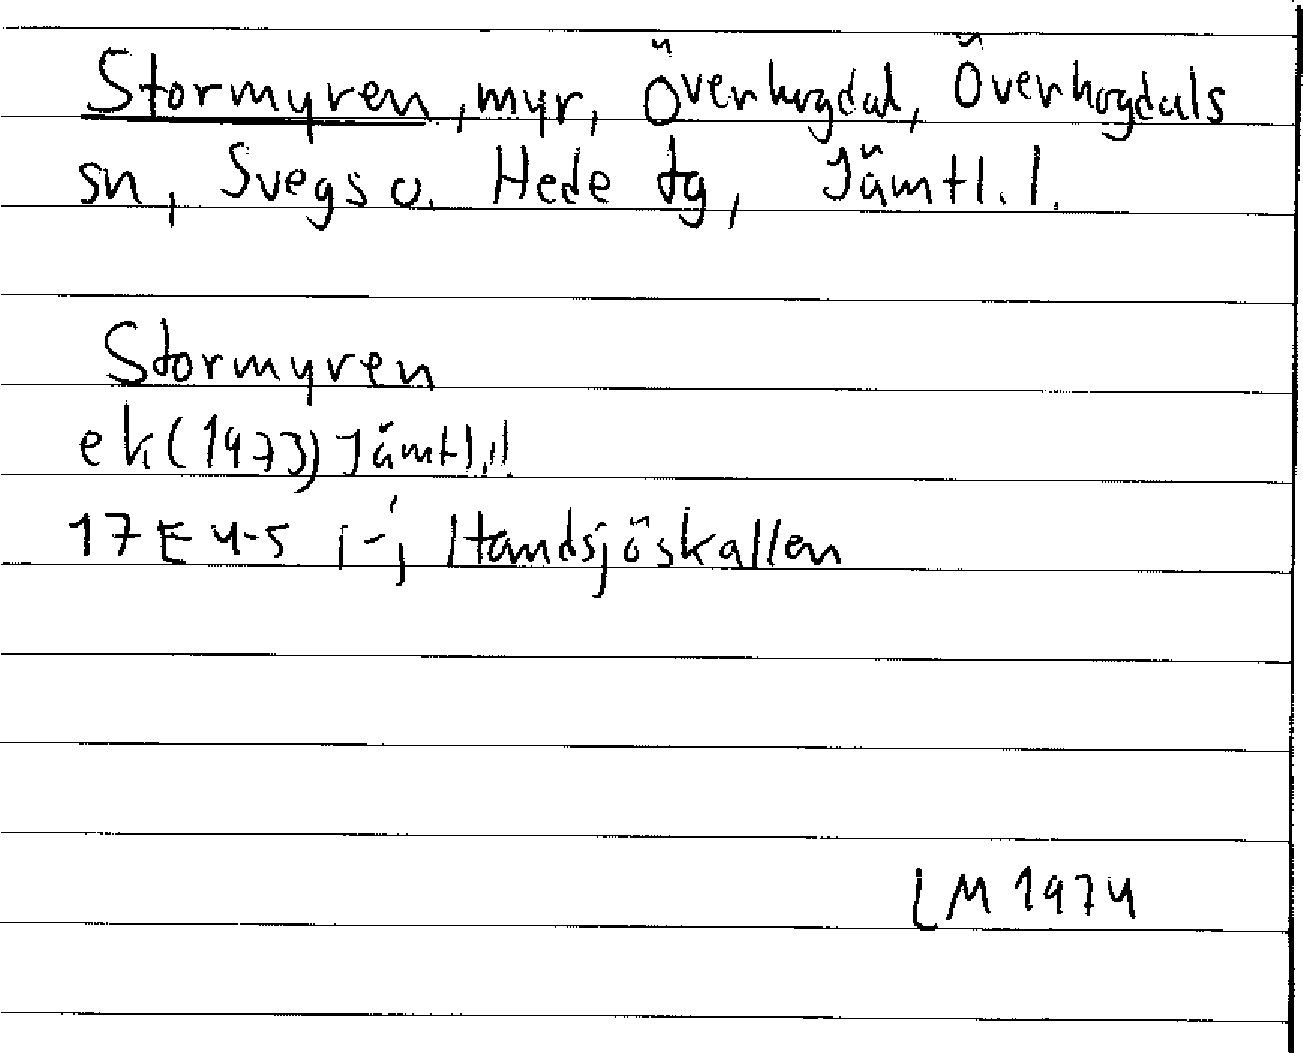 Stormyren, myr, Överhogdal, Överhogdals
sn, Svegs o. Hede tg, Jämtl. l.
Stormyren
ek (1973) Jämtl. l.
17E 4-5 i-j Handsjöskallen
LM 1974